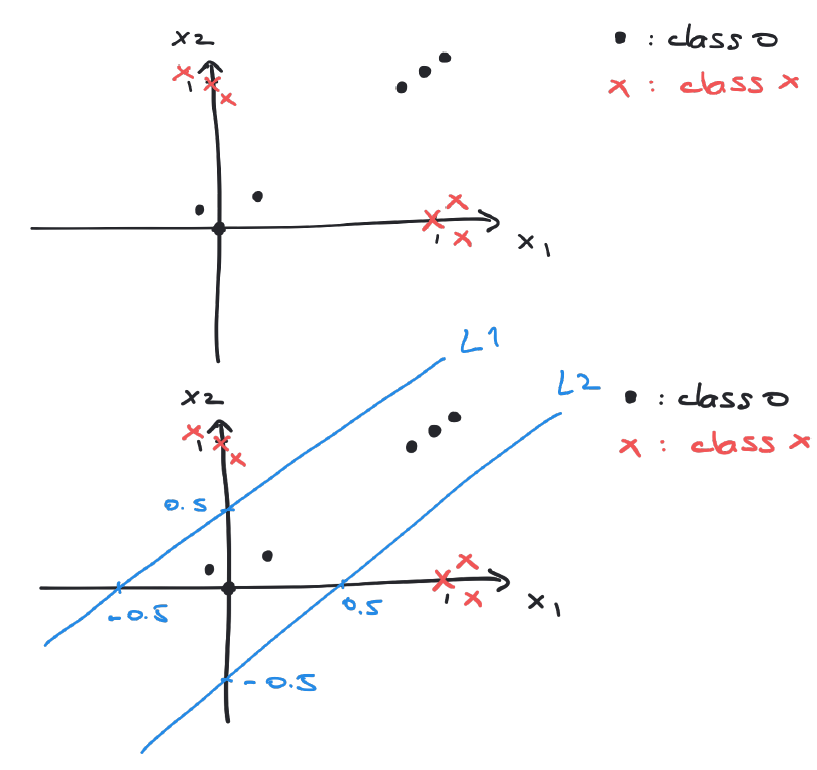 x2
• : class 0
x : class x
1
1
x1
L1
L2
x2
• : class 0
x : class x
1
0.5
-0.5
0.5
1
x1
-0.5